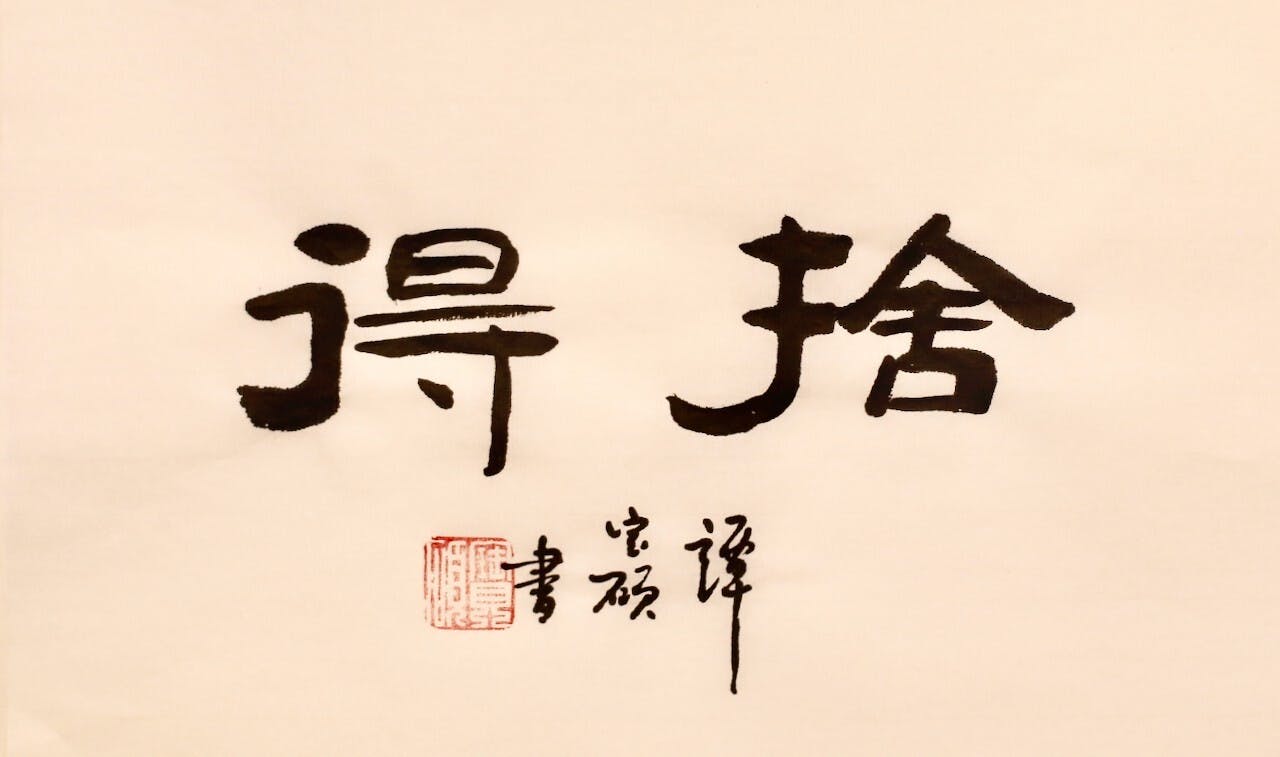 捨得
譚宝碩書